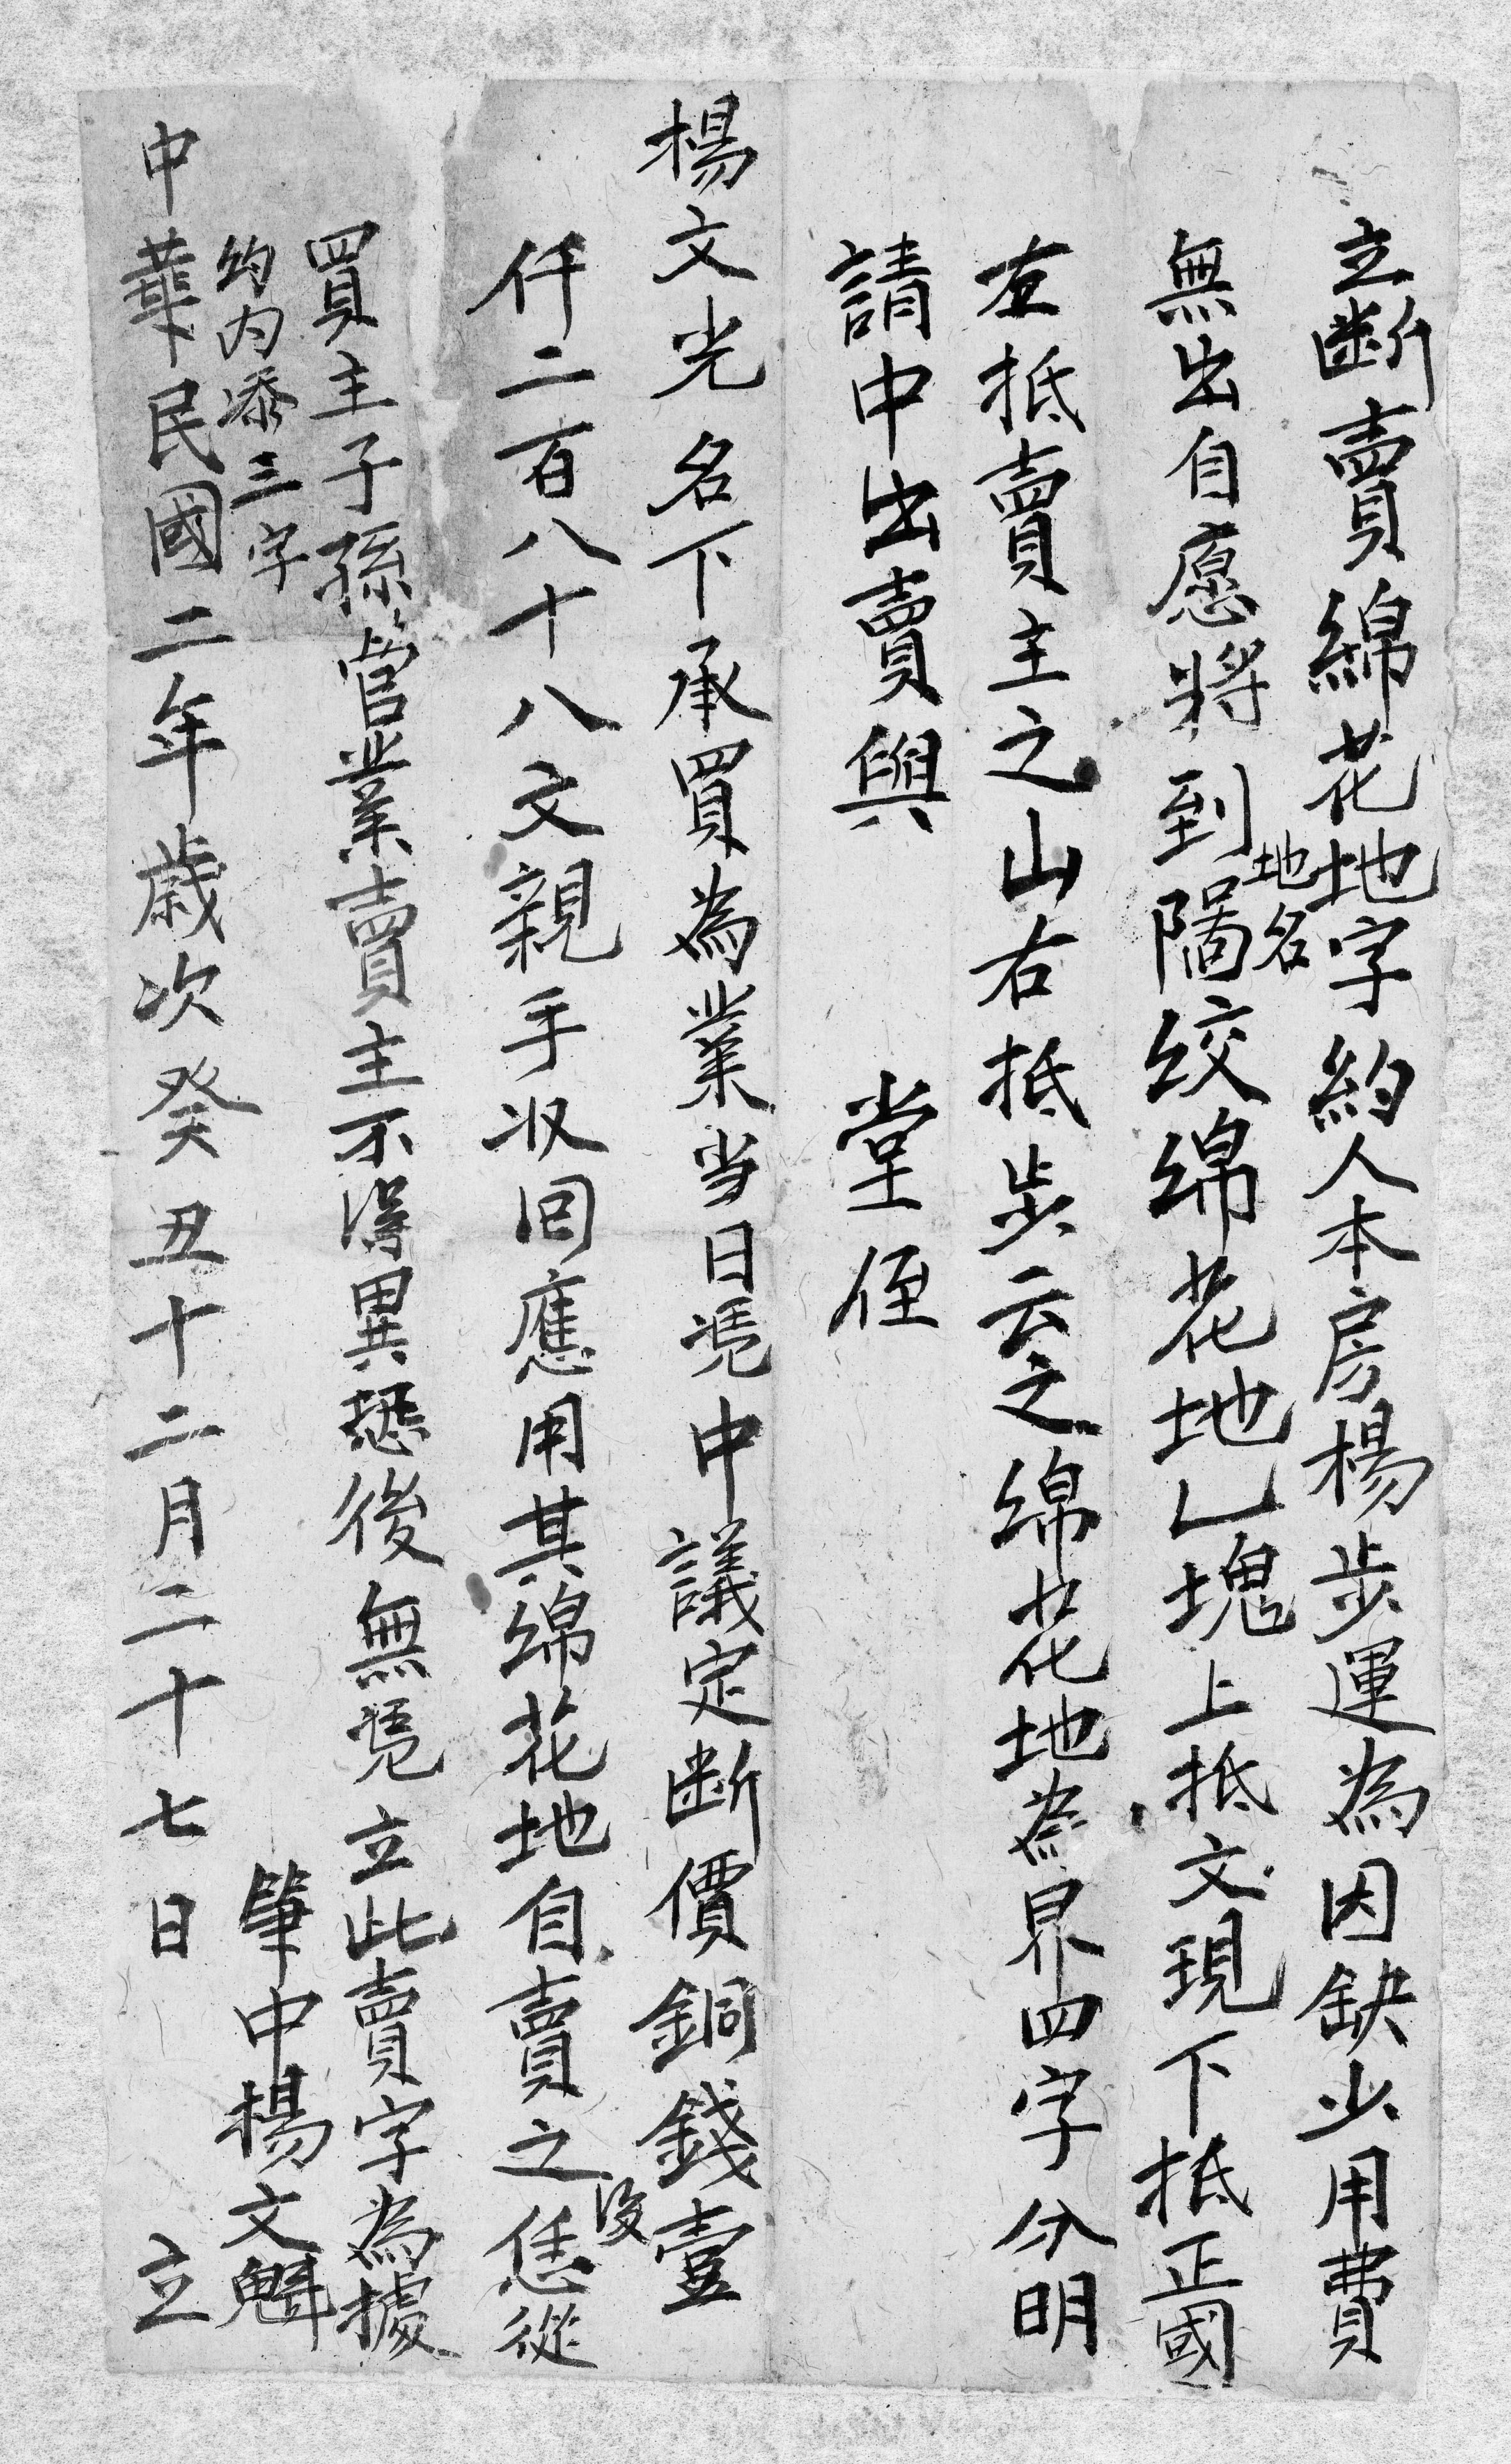 立斷賣綿花地字約人本房楊步運為因缺少用費
無出自愿將到地名絞綿花地乙塊上抵文現下抵正國
左抵賣主之山右抵步云之綿花地為界四字分明
請中出賣與　堂侄
楊文光名下承買為業当日凭中議定断價銅錢壹
仟二百八十八文親手收回應用其綿花地自賣之後恁從
買主子孫管業賣主不得異恐後無凭立此賣字為據
約内添三字
筆中楊文魁
中華民國二年歲次癸丑十二月二十七日　立